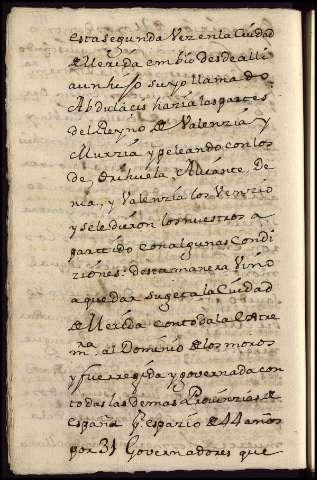 esta segunda Vez en la Ciudad
de Merida embio desde alli
a un hijo suyo llamado
Abdulacis hazia las partes
del Reyno de Valenzia y
Murzia y peleando con los
de Orihuela, Alicante, De
nia, y Valenzia los Venzio
y se le dieron los nuestros a
partido con algunas Condi
ziones: desta manera Vino
a quedar sugeta la Ciudad
de Merida con toda la Postre
ra
m. al Dominio de los moros
y fue rregida y governada con
todas las demas Provinzias de
España Pr. espazio de 44 años
por 31 Governadores que